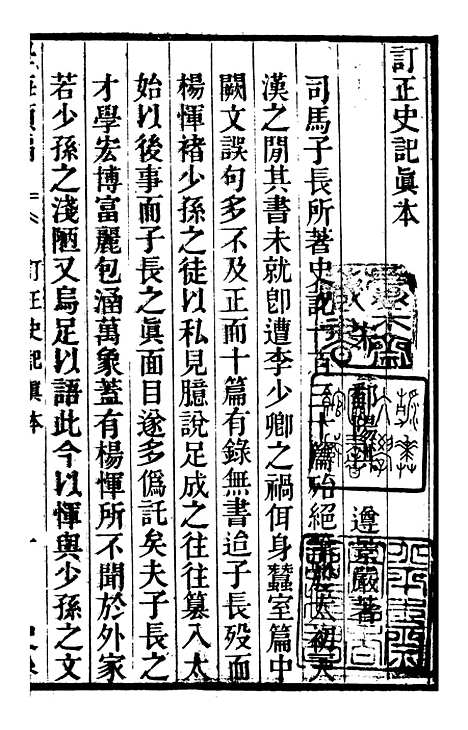 訂正史記眞本
鄱陽洪 遵景嚴著
司馬子長所著史記一百三十篇殆絕於太初天
漢之閒其書未就卽遭李少卿之禍佴身蠶室篇中
闕文誤句多不及正而十篇有錄無書迨子長歿而
楊惲褚少孫之徒以私見臆說足成之往往篡入太
始以後事而子長之眞面目遂多僞託矣夫子長之
才學宏博富麗包涵萬象蓋有楊惲所不聞於外家
若少孫之淺陋又烏足以語此今以惲與少孫之文
訂正史記眞本 一